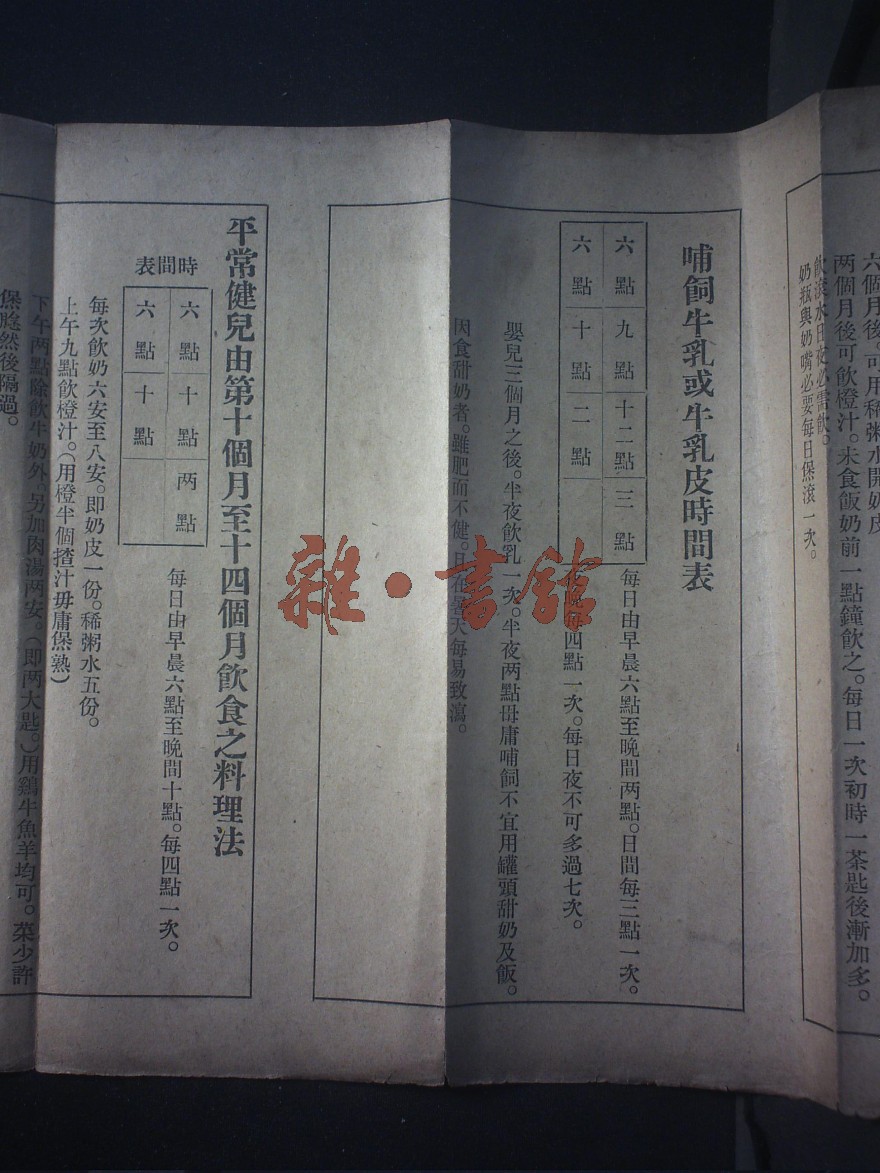 六個月後可用稀粥水開奶皮
兩個月後可飲橙汁。未食飯奶前一點鐘飲之。每日一次初時一茶匙後漸加多。
飲滾水日夜必需飲。
奶瓶與奶嘴必要每日煲滾一次。
哺飼牛乳或牛乳皮時間表
六點 九點 十二點 三點
六點 十點 二點
每日由早晨六點至晚間两點。日間每三點一次。
每四點一次。每日夜不可多過七次。
嬰兒三個月之後。半夜飲乳一次。半夜两點毋庸哺飼不宜用罐頭甜奶及飯。
因食甜奶者。雖肥而不健。天每易致瀉。
平常健兒由第十個月至十四個月飲食之料理法
時間表
六點 十點 两點
六點 十點
每日由早晨六點至晚間十點。每四點一次。
每次飲奶六安至八安。即奶皮一份。稀粥水五份。
上午九點飲橙汁。(用橙半個揸汁毋庸煲熟)
下午两點除飲牛奶外。另加肉湯两安。(即两大匙。)用鷄牛魚羊均可。菜少許
煲腍然後隔過。
雜·書館